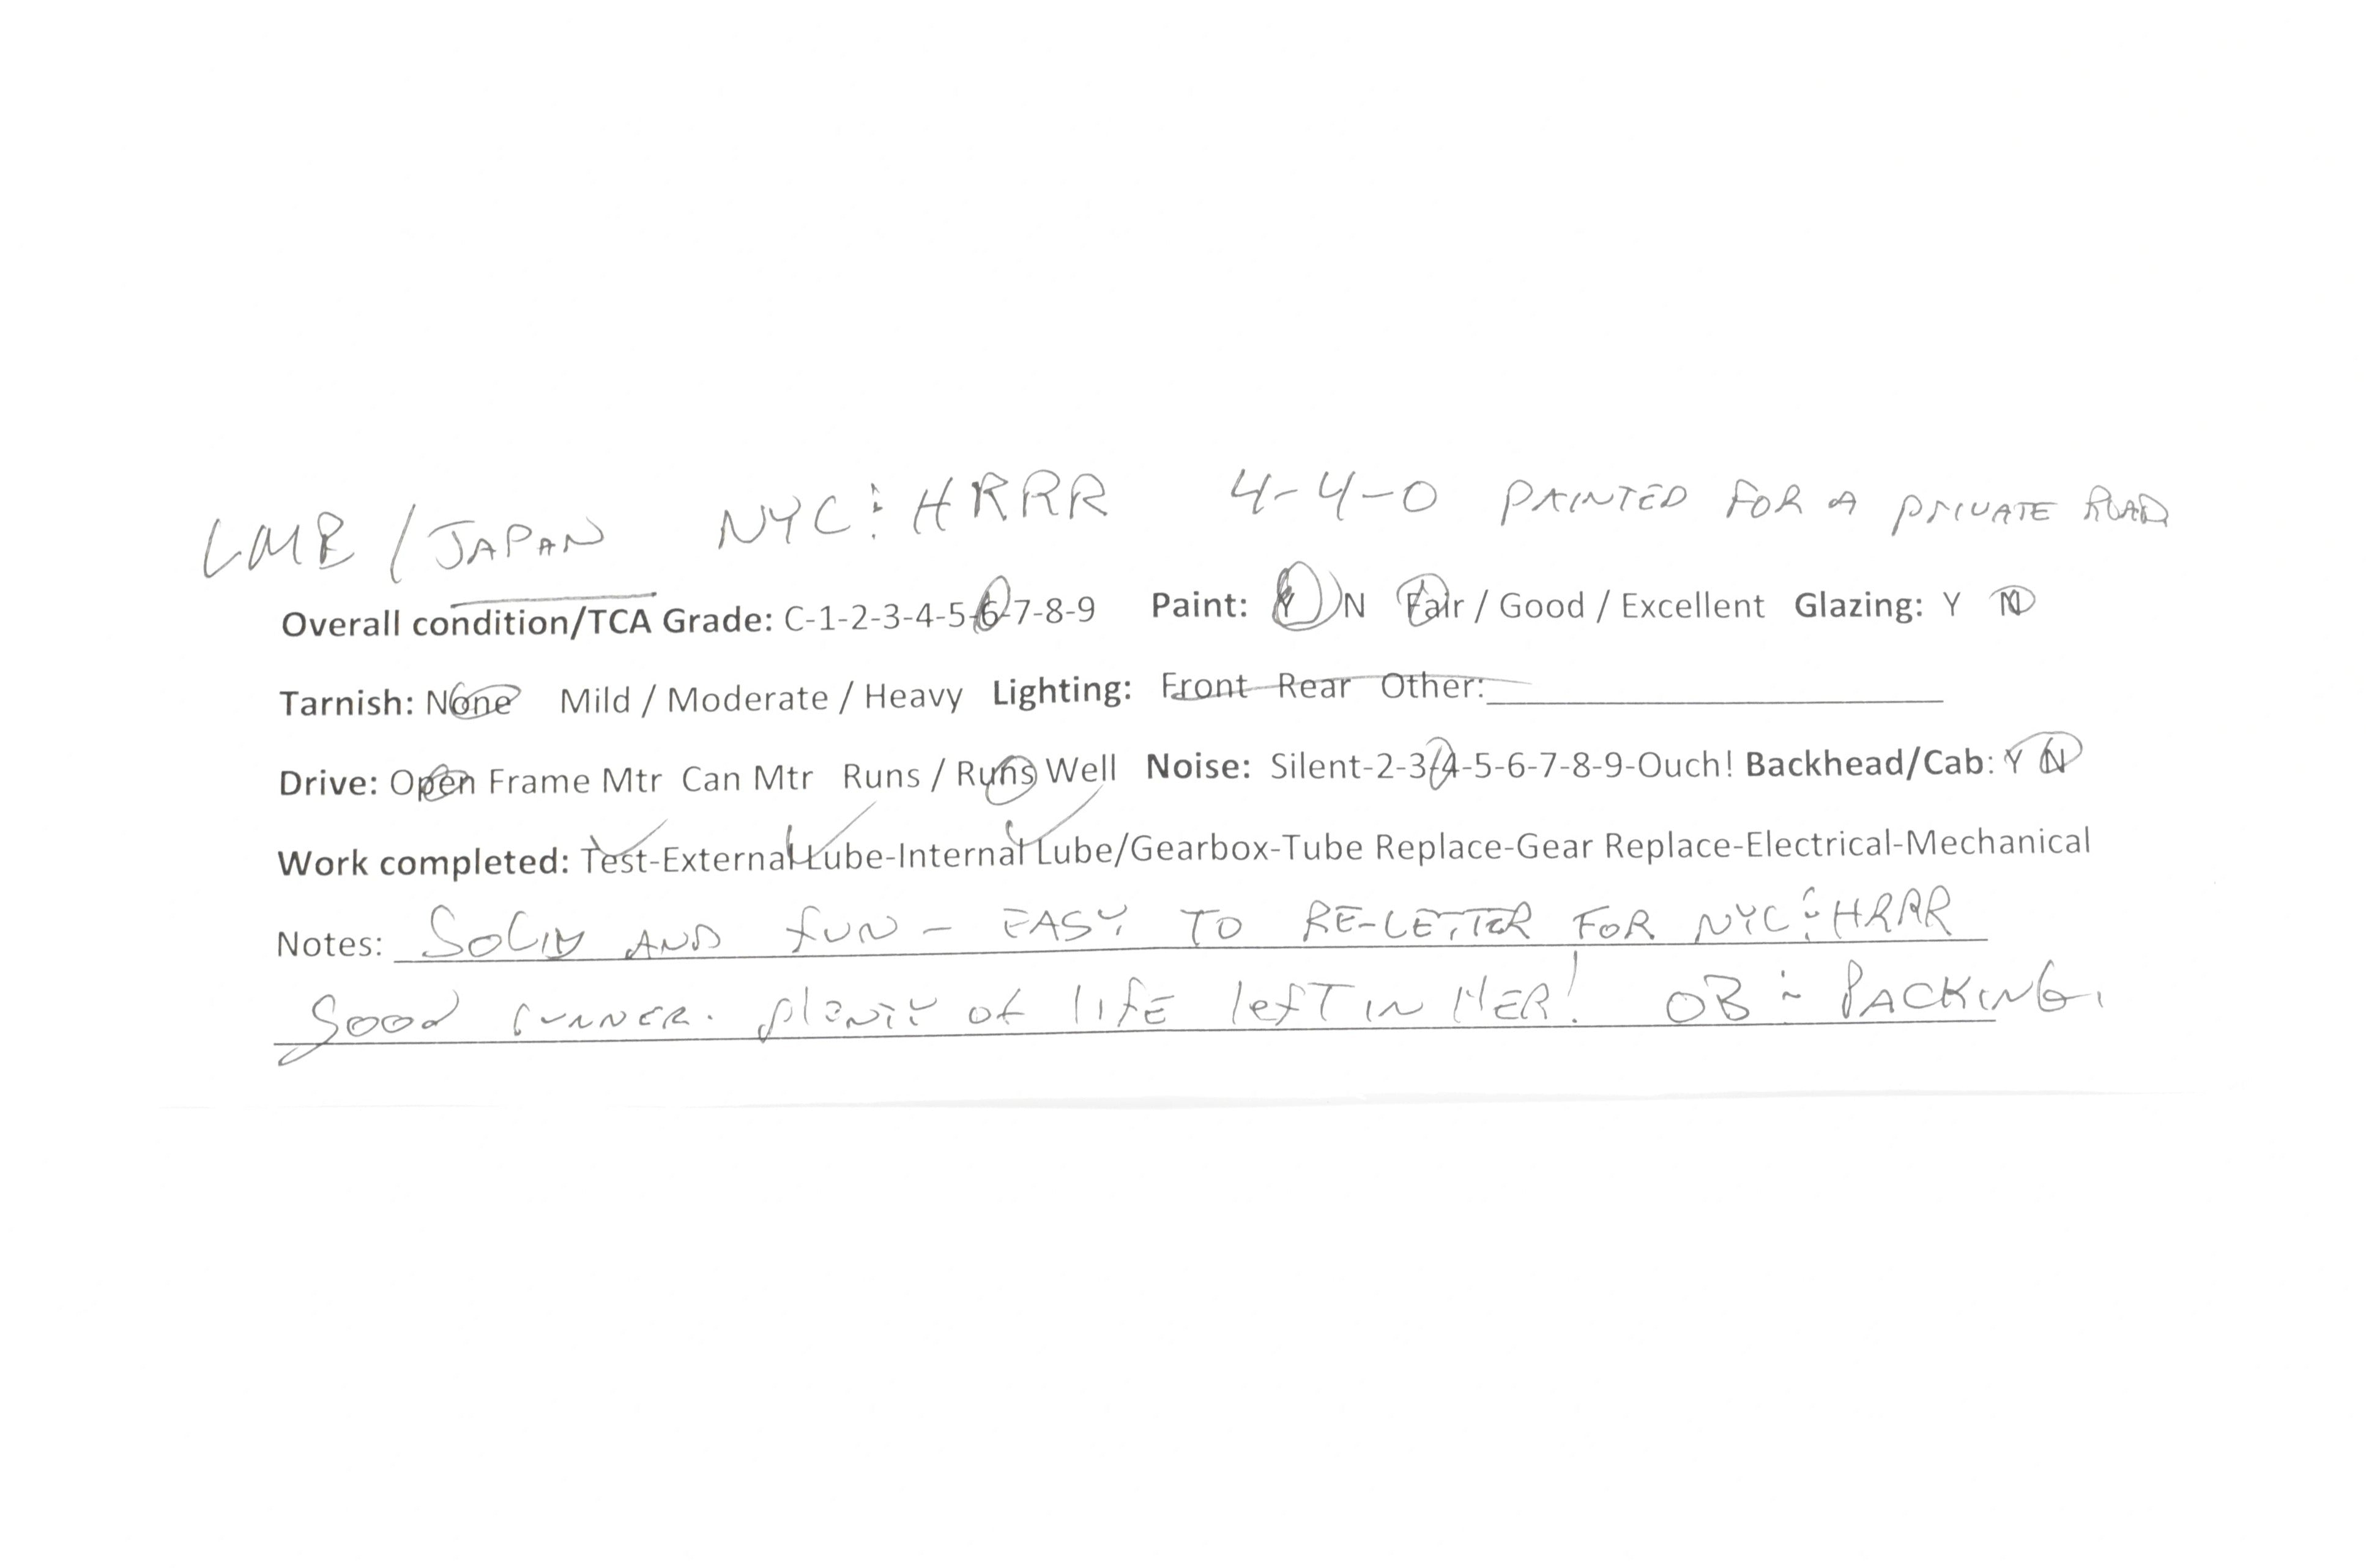 LMB / JAPAN NYC & HRRR 4-4-0 PAINTED FOR A PRIVATE ROAD
Overall condition/TCA Grade: C-1-2-3-4-5-6-7-8-9 Paint: Y N Fair / Good / Excellent Glazing: Y N
Tarnish: None Mild / Moderate / Heavy Lighting: Front Rear Other:
Drive: Open Frame Mtr Can Mtr Runs / Runs Well Noise: Silent-2-3-4-5-6-7-8-9-Ouch! Backhead/Cab: Y N
Work completed: Test-External Lube-Internal Lube/Gearbox-Tube Replace-Gear Replace-Electrical-Mechanical
Notes: SOLID AND FUN - EASY TO RE-LETTER FOR NYC & HRRR
Good runner. plenty of life left in HER! OB & PACKING.